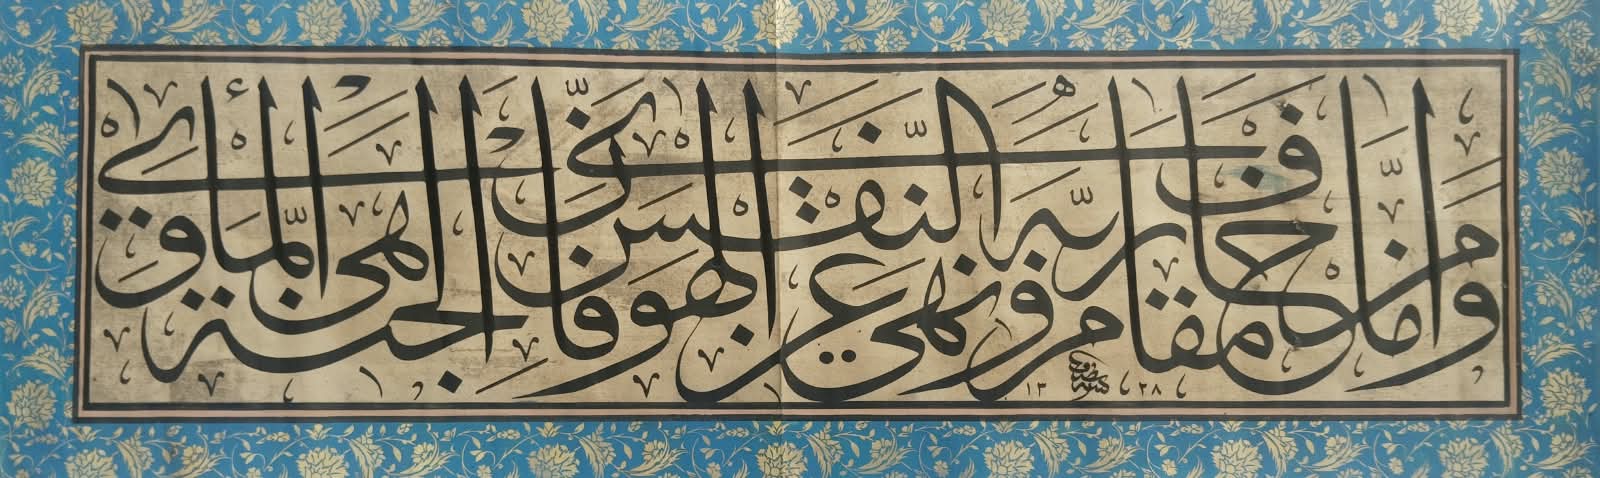 وأما من خاف مقام ربه ونهى النفس عن الهوى فإن الجنة هي المأوى
١٣٢٨